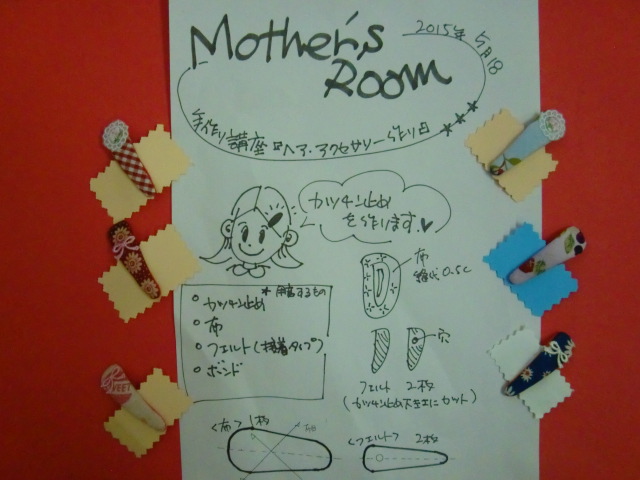 Mother's
Room
2015年5月18
手作り講座 ヘア・アクセサリー作り
カッチン止め
を作ります。♥
*用意するもの
カッチン止め
布
フェルト(接着タイプ)
ボンド
布
縫代0.5c
穴
フェルト 2枚
(カッチン止め大にカット)
<布> 1枚
<フェルト> 2枚